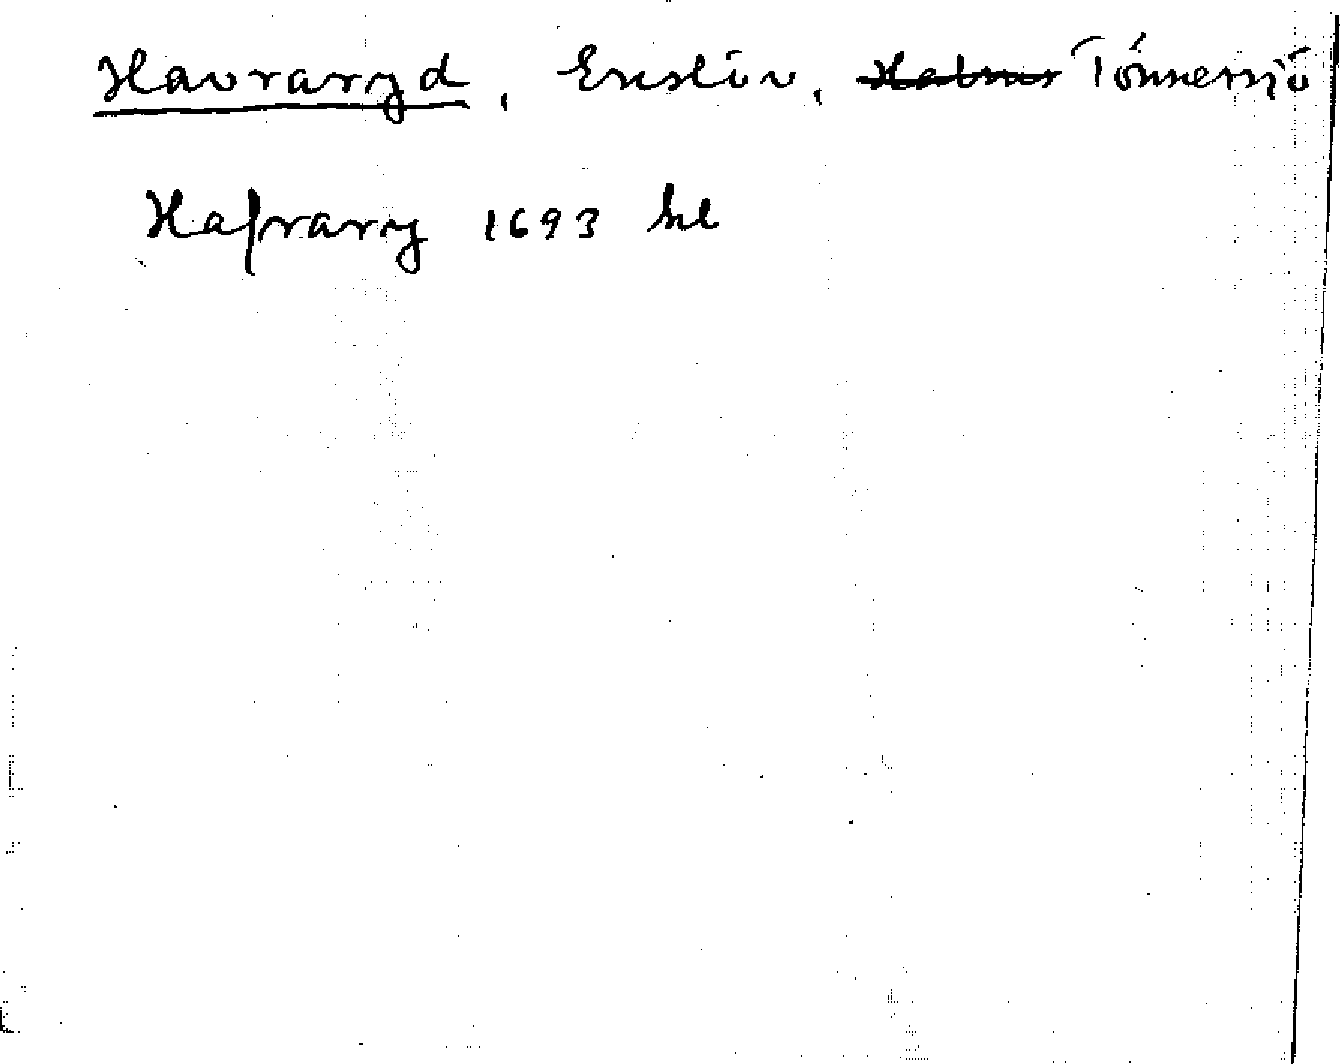 Havraryd, Enslöv, ~~Halms~~ Tönnersjö
Hafrary 1693 hel